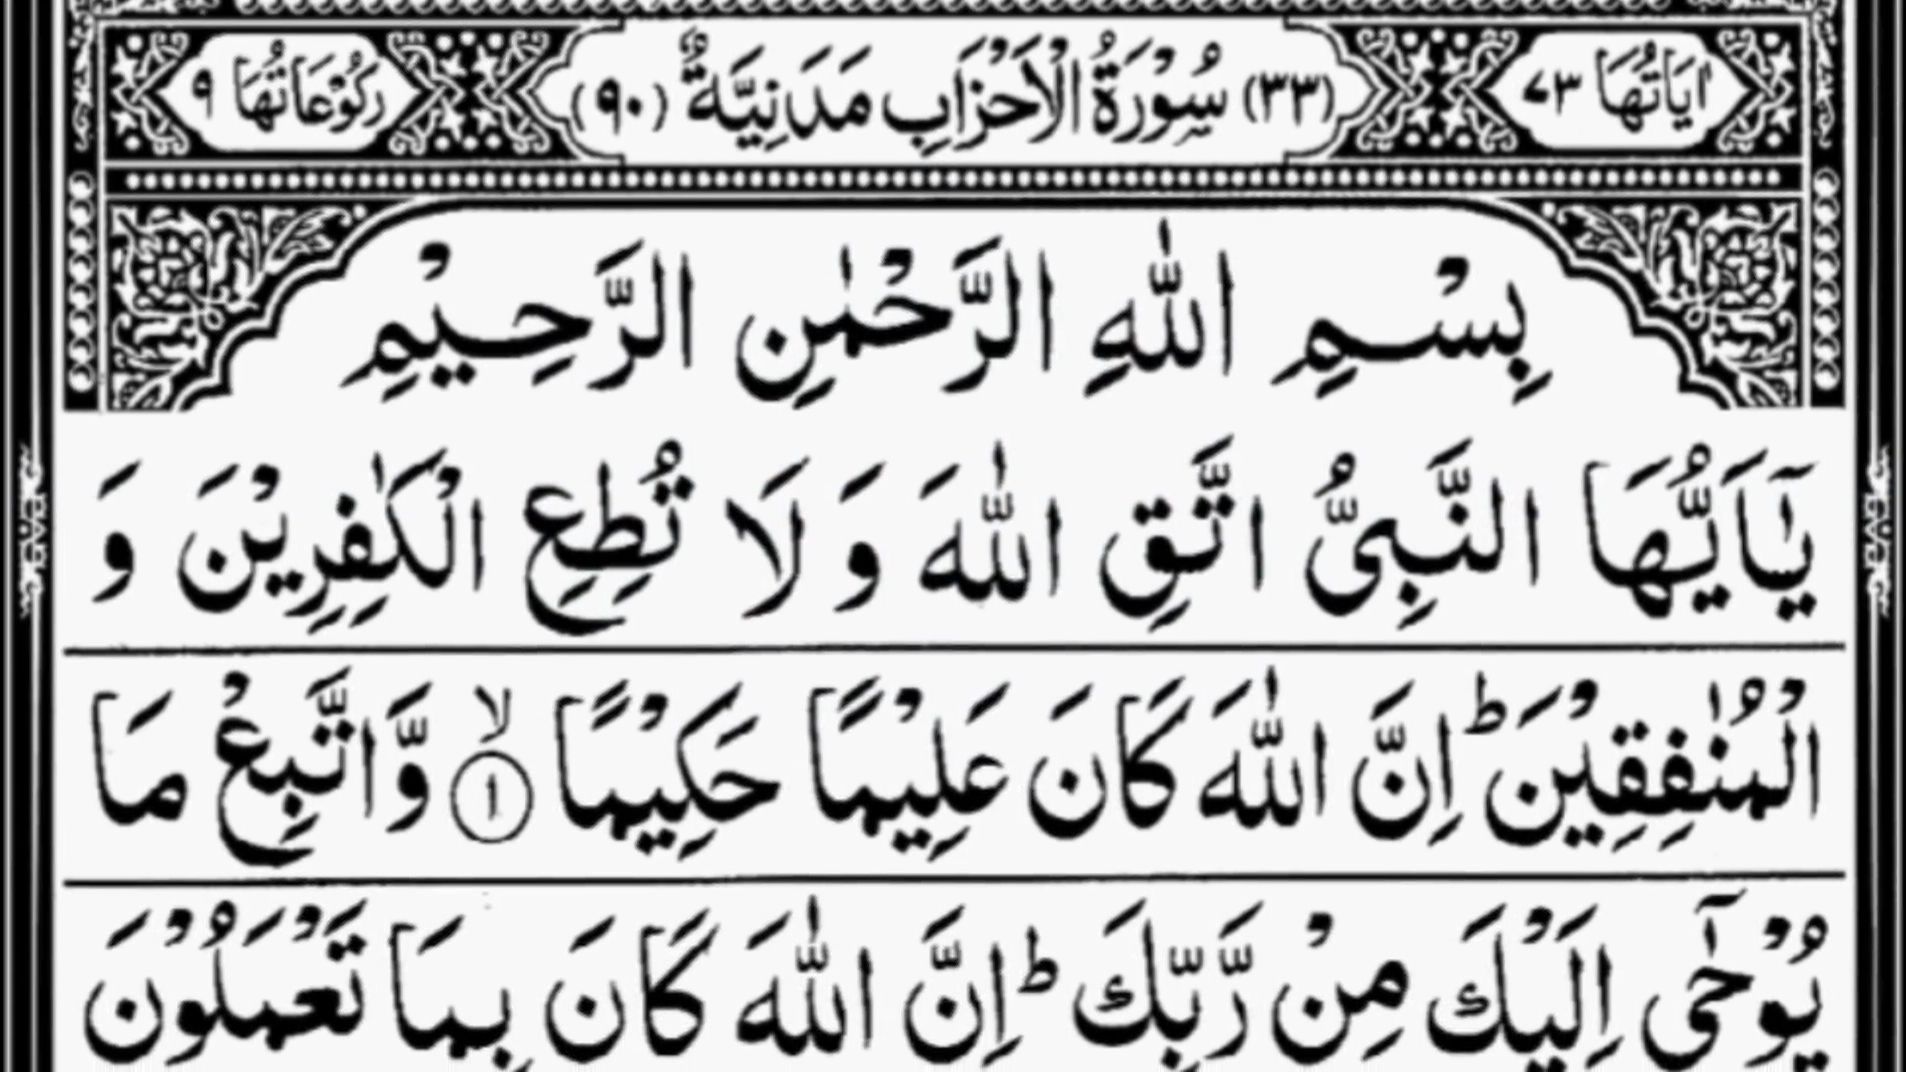 اٰيَاتُهَا ٧٣ (٣٣) سُوْرَةُ الْاَحْزَابِ مَدَنِيَّةٌ (٩٠) رَكُوْعَاتُهَا ٩
بِسْمِ اللّٰهِ الرَّحْمٰنِ الرَّحِيْمِ
يٰٓاَيُّهَا النَّبِىُّ اتَّقِ اللّٰهَ وَ لَا تُطِعِ الْكٰفِرِيْنَ وَ
الْمُنٰفِقِيْنَ ؕ اِنَّ اللّٰهَ كَانَ عَلِيْمًا حَكِيْمًا ۙ ١ وَّ اتَّبِعْ مَا
يُوْحٰٓى اِلَيْكَ مِنْ رَّبِّكَ ؕ اِنَّ اللّٰهَ كَانَ بِمَا تَعْمَلُوْنَ